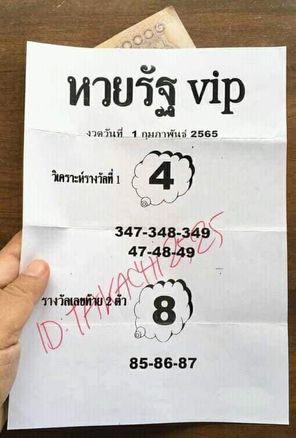 หวยรัฐ vip
งวดวันที่ 1 กุมภาพันธ์ 2565
วิเคราะห์รางวัลที่ 1
4
347-348-349
47-48-49
รางวัลเลขท้าย 2 ตัว
8
85-86-87
ID:TAKACHI2525